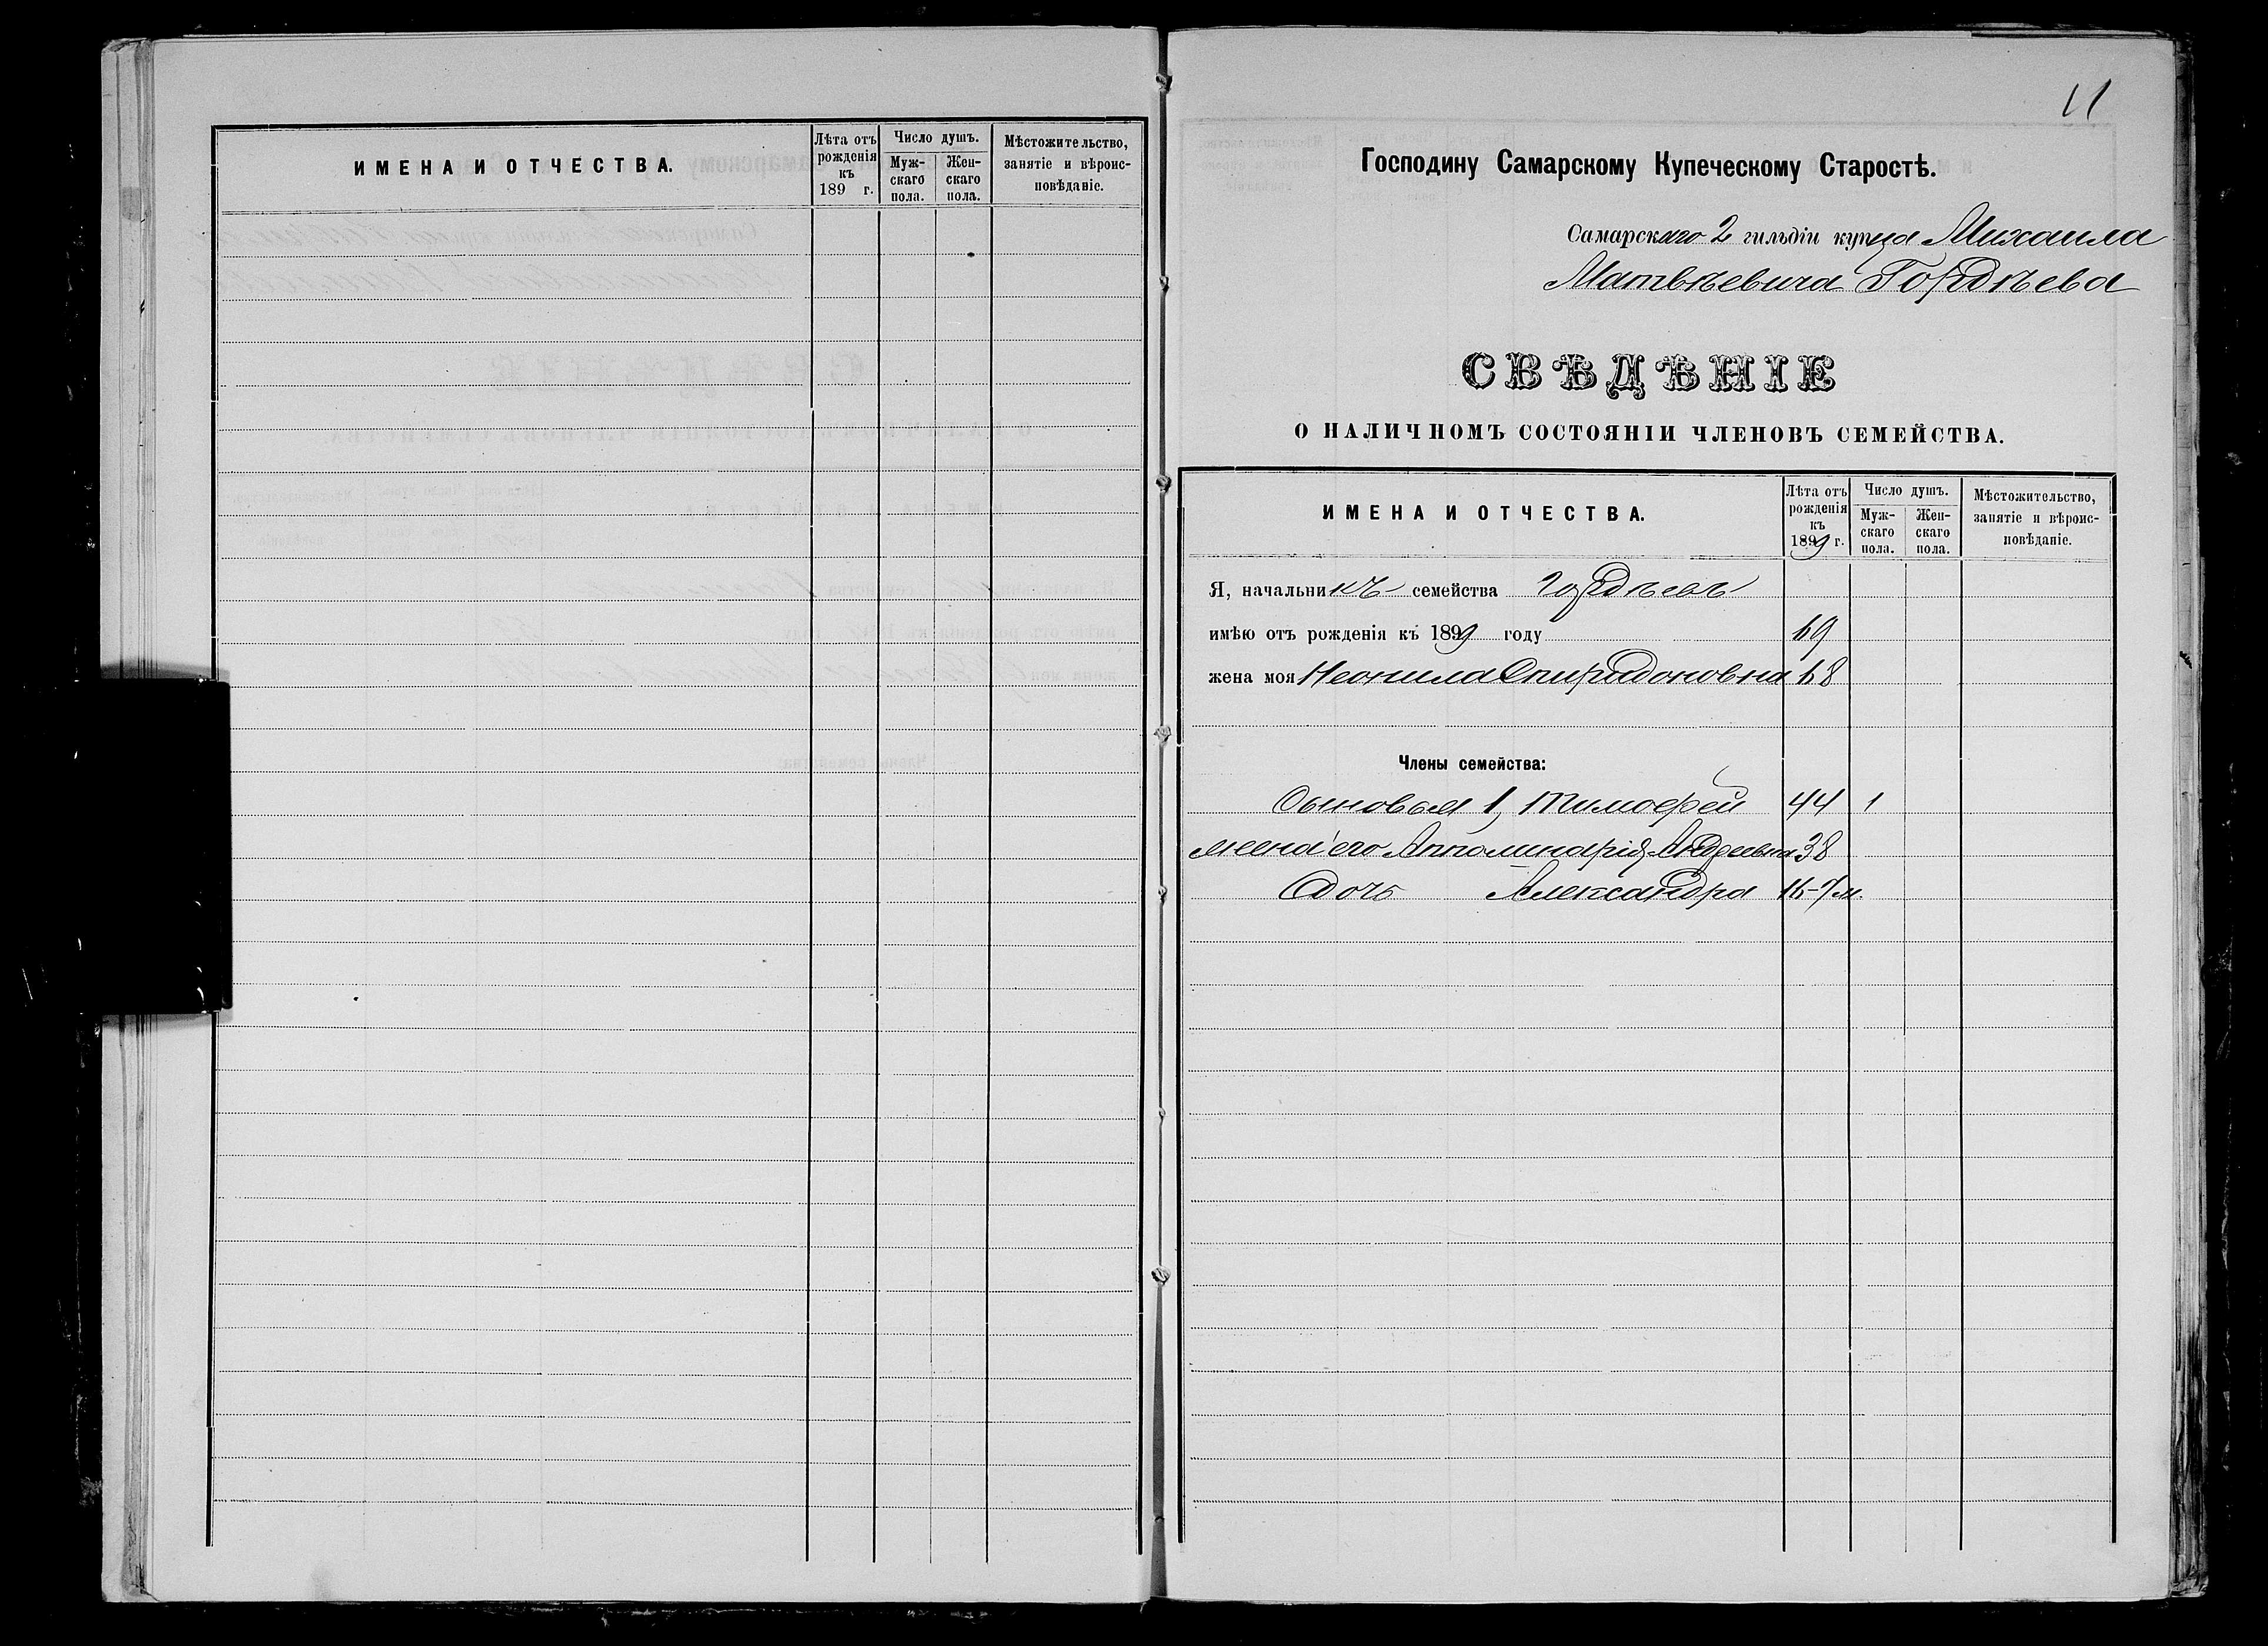 ИМЕНА И ОТЧЕСТВА.
Лѣта отъ рожденія къ 189 г.
Число душъ.
Мужскаго пола.
Женскаго пола.
Мѣстожительство, занятіе и вѣроисповѣданіе.
11
Господину Самарскому Купеческому Старостѣ.
Самарскаго 2 гильдіи купца Михаила
Матвѣевича Гордѣева
СВѢДѢНІЕ
О НАЛИЧНОМЪ СОСТОЯНІИ ЧЛЕНОВЪ СЕМЕЙСТВА.
ИМЕНА И ОТЧЕСТВА.
Лѣта отъ рожденія къ 1899 г.
Число душъ.
Мужскаго пола.
Женскаго пола.
Мѣстожительство, занятіе и вѣроисповѣданіе.
Я, начальникъ семейства Гордѣевъ
имѣю отъ рожденія къ 1899 году 69
жена моя Неонила Спиридоновна 68
Члены семейства:
Сыновья 1, Тимофей 44 1
жена его Апполинарія Андреевна 38
Дочь Александра 16-7 м.